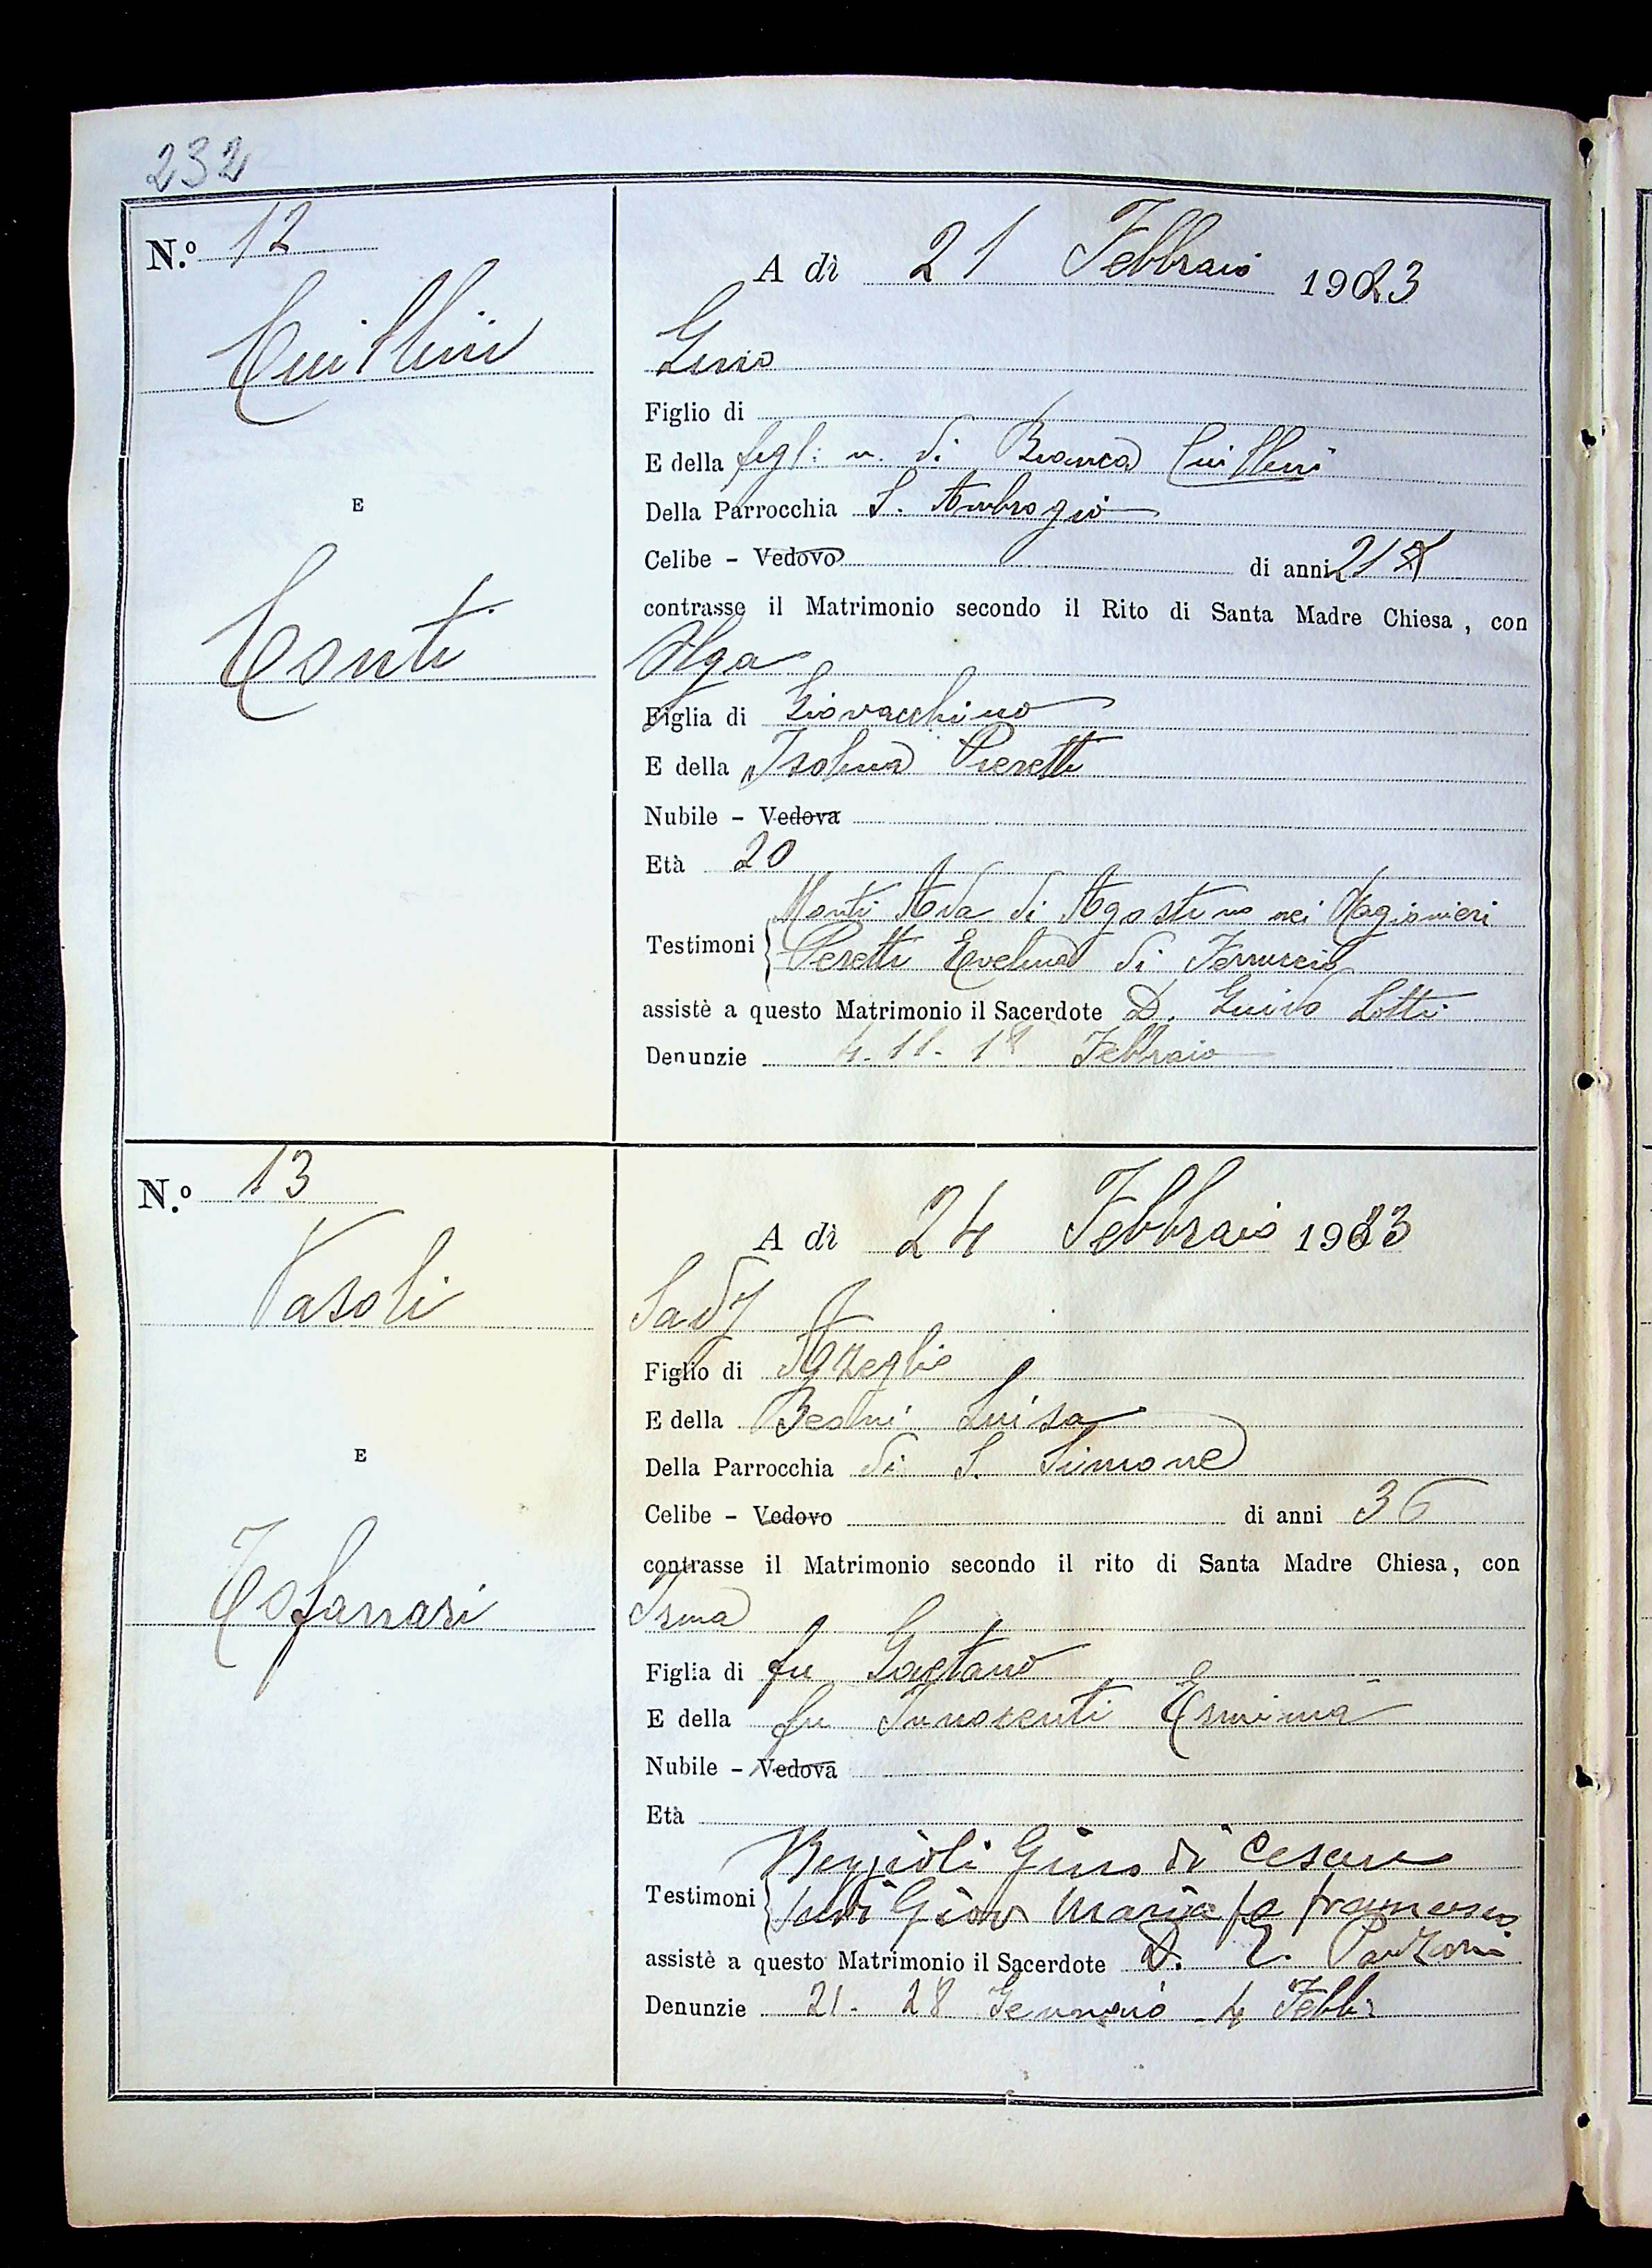 232
N.º 12
A dì 21 Febbraio 1923
Gino
Figlio di
E della figl: n. di Bianca
Della Parrocchia S. Ambrogio
Celibe - Vedovo di anni 21
contrasse il Matrimonio secondo il Rito di Santa Madre Chiesa, con
E
Conti
Olga
Figlia di Giovacchino
E della Isolina Pieretti
Nubile - Vedova
Età 20
Testimoni Monti Ada di Agostino nei Ragionieri
Peretti Evelina di Ferruccio
assistè a questo Matrimonio il Sacerdote D. Guido Lotti
Denunzie 4. 11. 18 Febbraio
N.º 13
A dì 24 Febbraio 1923
Vasoli
Sady
Figlio di Azeglio
E della Luisa
Della Parrocchia di S. Simone
Celibe - Vedovo di anni 36
contrasse il Matrimonio secondo il rito di Santa Madre Chiesa, con
E
Tofanari
Irma
Figlia di fu Gaetano
E della fu Innocenti Ermima
Nubile - Vedova
Età
Testimoni Gino di Cesare
Giov Maria fu francesco
assistè a questo Matrimonio il Sacerdote D. E.
Denunzie 21. 28 Gennaio 4 Febb